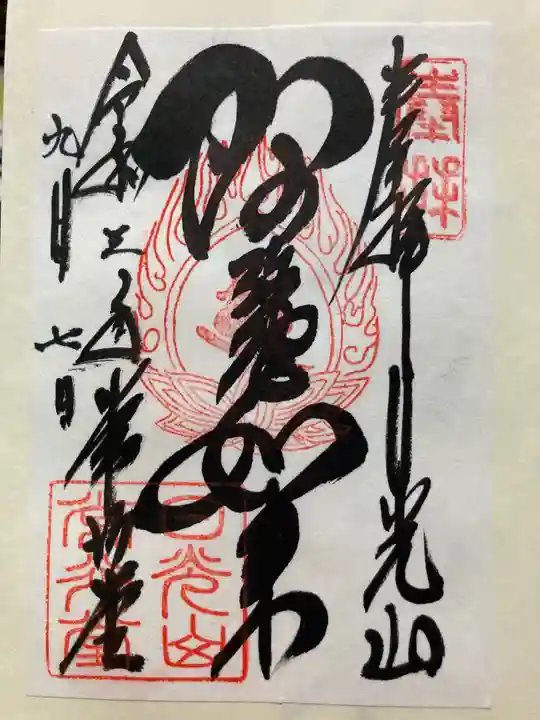 奉拝
奉拝 日光山
阿弥陀如来
令和三年 常行堂
九月七日
日光山
常行堂